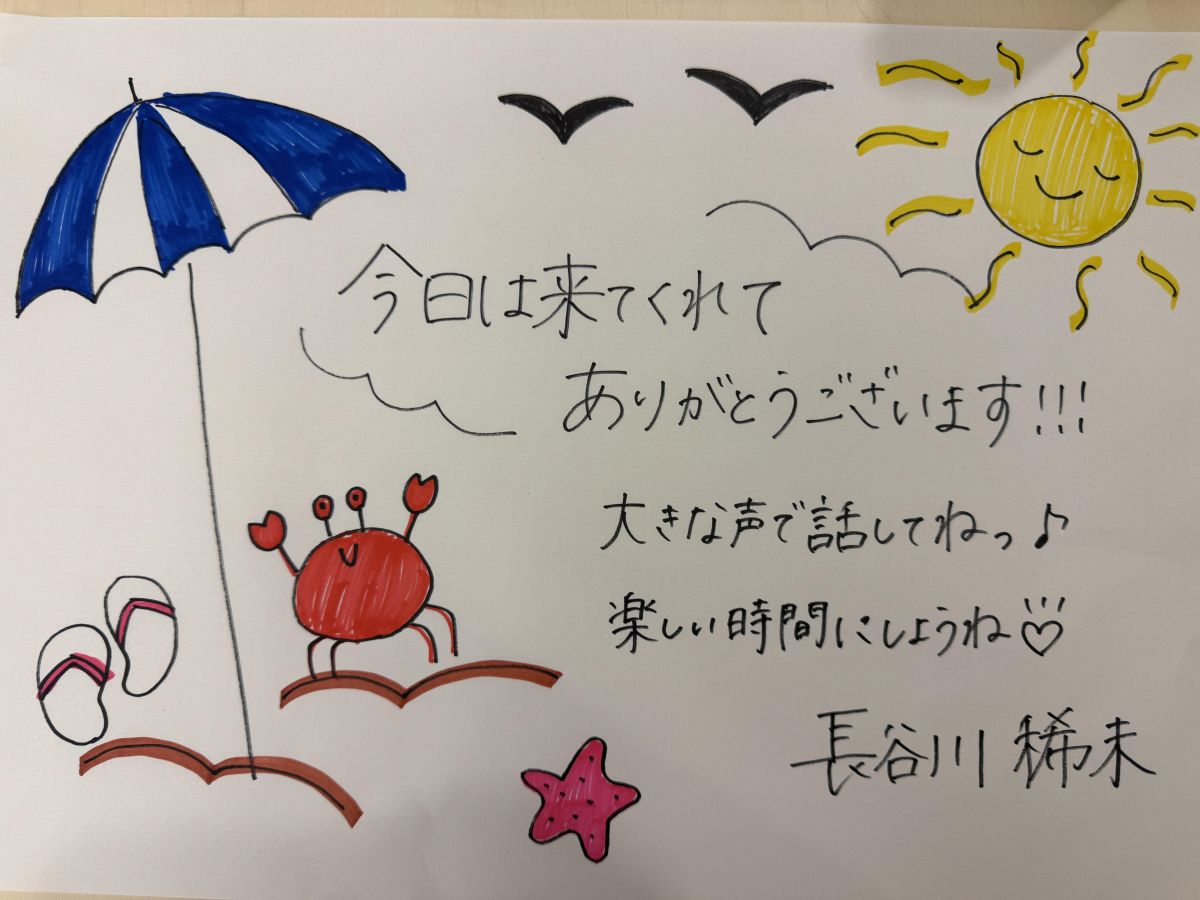 今日は来てくれて
ありがとうございます!!!
大きな声で話してねっ♪
楽しい時間にしようね♡
長谷川 稀未